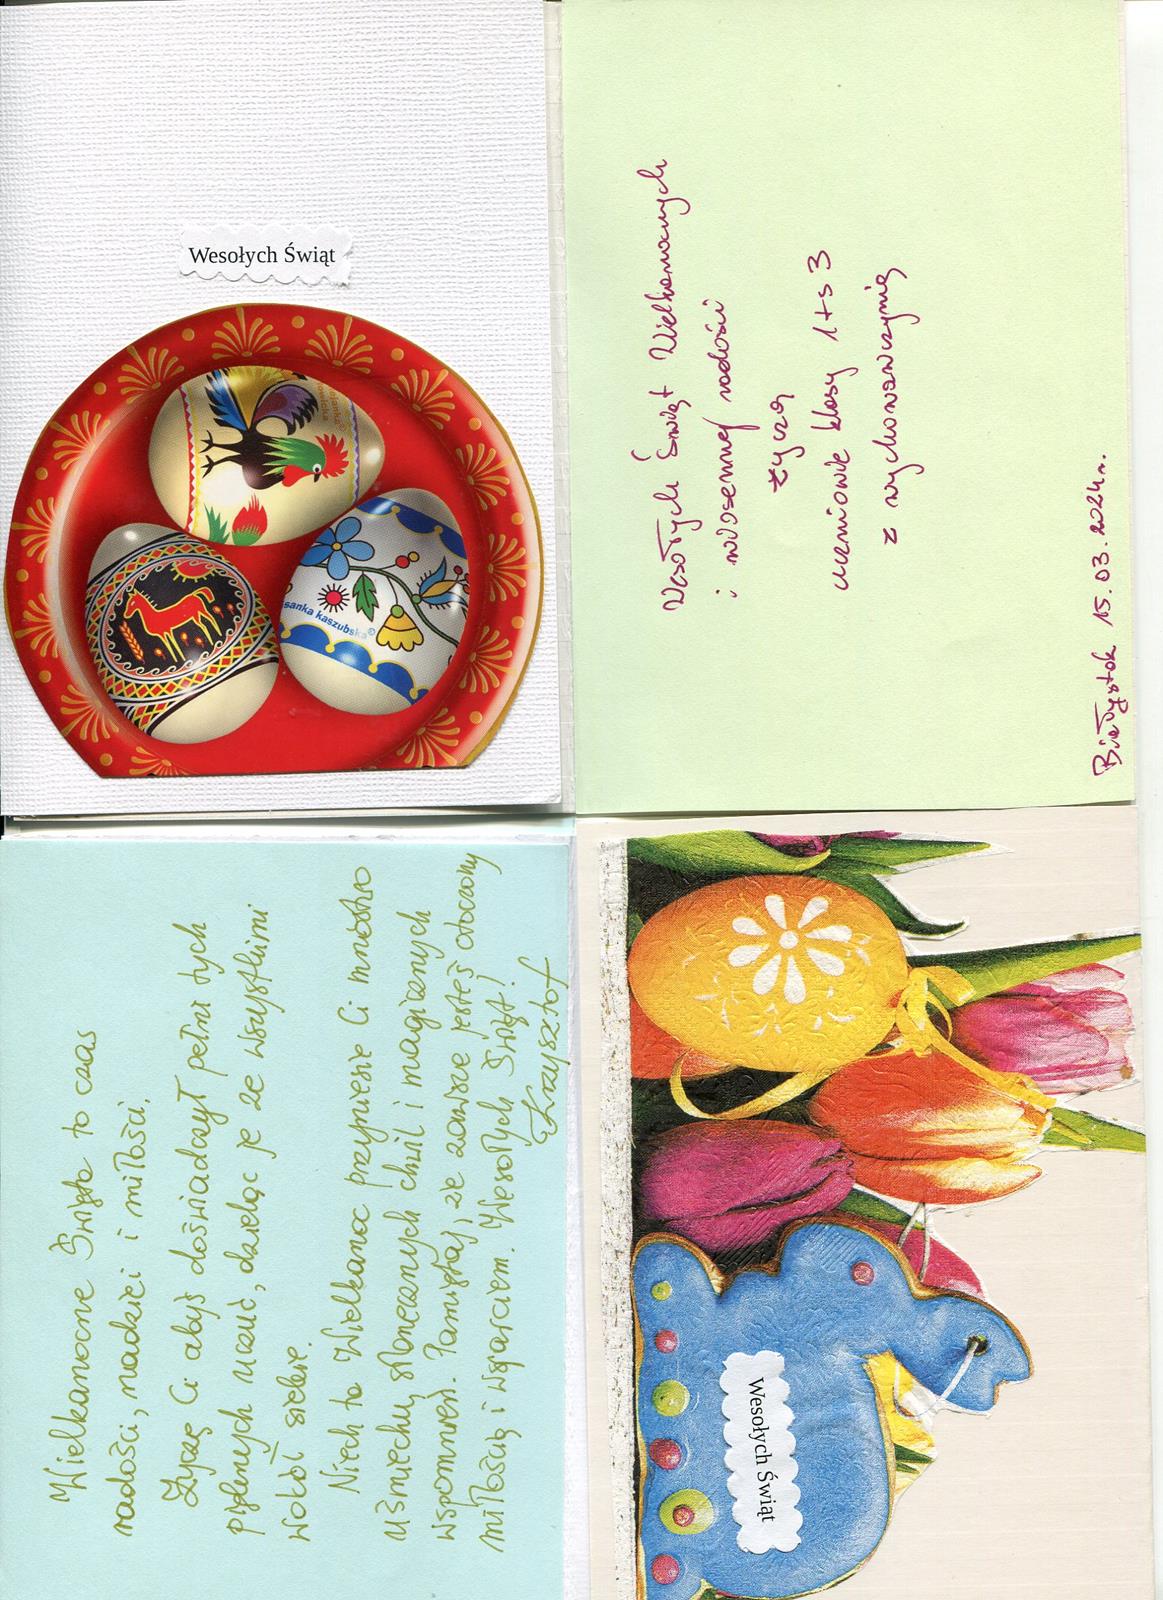 Wesołych Świąt
pisanka kaszubska©
Wesołych Świąt Wielkanocnych
i wiosennej radości
życzą
uczniowie klasy 1ts3
z wychowawczynią
Białystok 15.03.2024r.
Wielkanocne Święta to czas
radości, nadziei i miłości.
Życzę Ci abyś doświadczył pełni tych
pięknych uczuć, dzieląc je ze wszystkimi
wokół siebie.
Niech ta Wielkanoc przyniesie Ci mnóstwo
uśmiechu, słonecznych chwil i magicznych
wspomnień. Pamiętaj, że zawsze jesteś otoczony
miłością i wsparciem. Wesołych Świąt!
Krzysztof
Wesołych Świąt